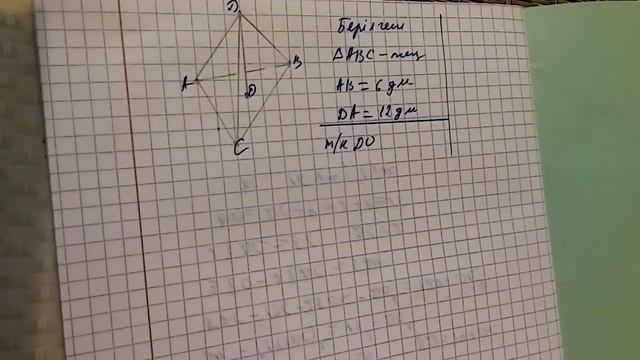 D
A
B
D
C
Берілген
ΔABC –тең
AB = 6 дм
DA = 12 дм
т/к DO